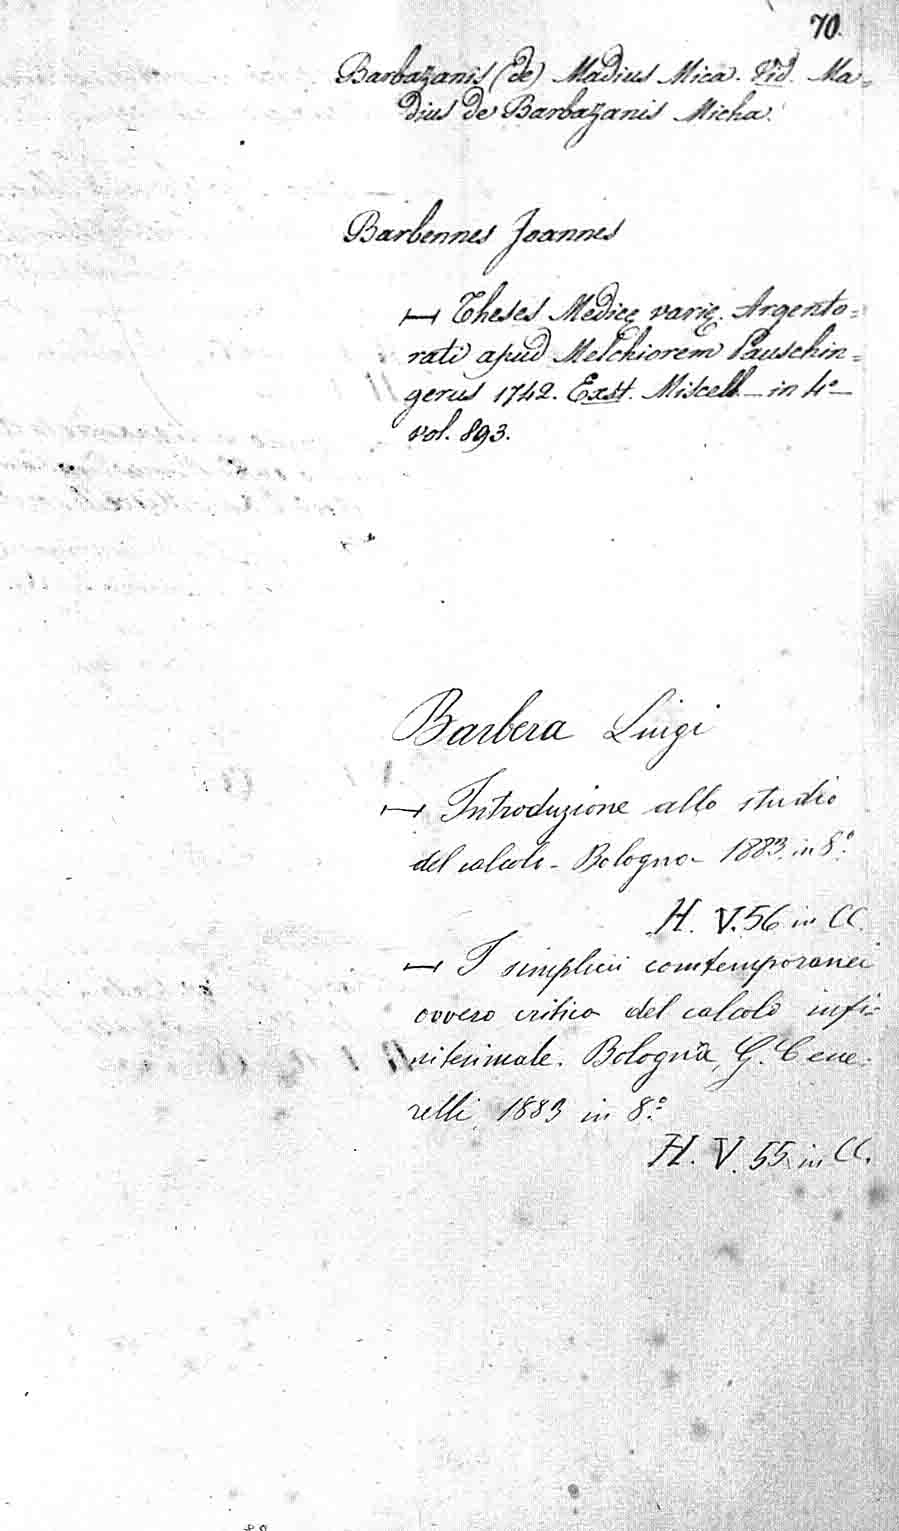 70.
Barbazanis (de) Madius Mica. Vid. Ma=
dius de Barbazanis Micha.
Barbennes Joannes
— Theses Medicę varię. Argento=
rati apud Melchiorem Pauschin=
gerus 1742. Exst. Miscell. – in 4° –
vol. 893.
Barbera Luigi
— Introduzione allo studio
del calcolo – Bologna – 1883. in 8°.
H. V. 56 in CC.
— I simplicii contemporanei
ovvero critica del calcolo infi=
nitesimale. Bologna, G. Cene=
relli, 1883 in 8°.
H. V. 55 in CC.